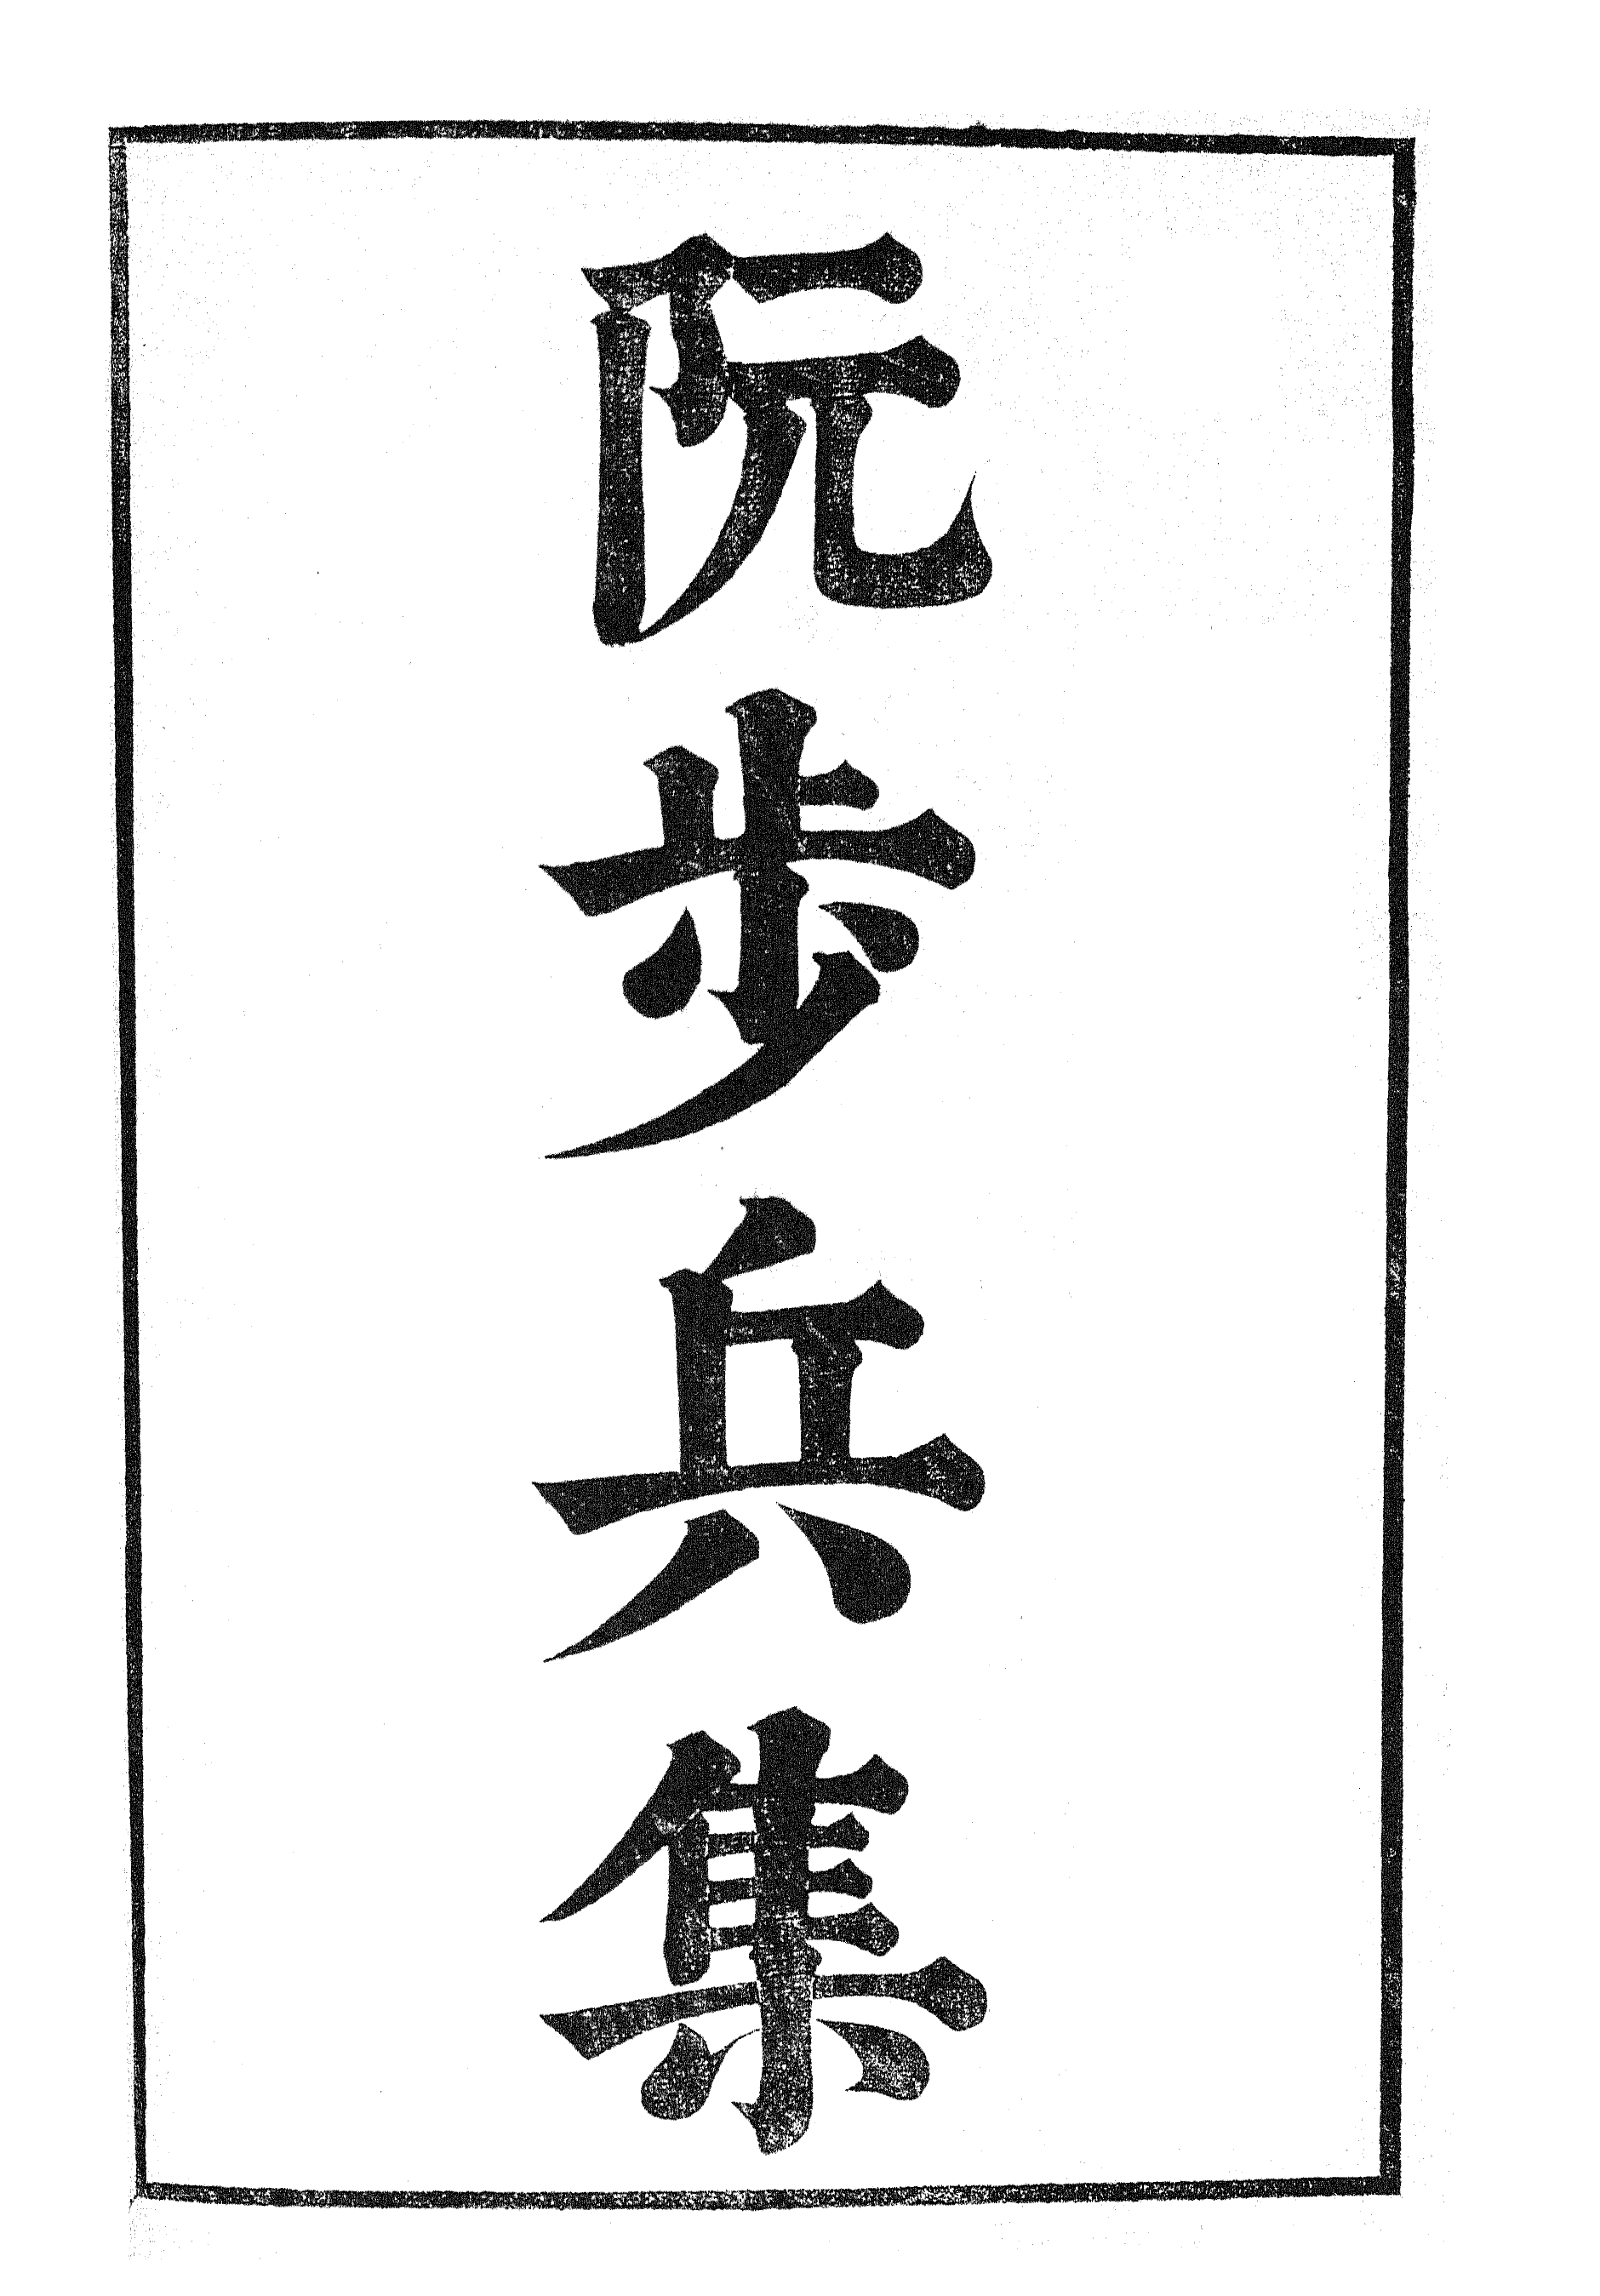 阮步兵集